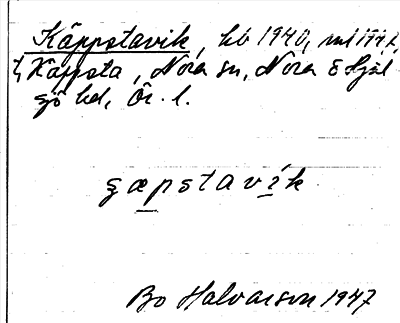 Käppstavik, hb 1940,
t, Käppsta, Nora sn, Nora & Hjul
sjö hd, Ör. l.
gæpstavik
Bo Halvarson 1947